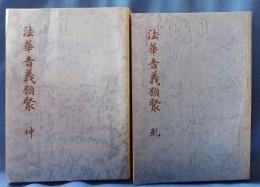 法華音義類聚 乾
法華音義類聚 坤